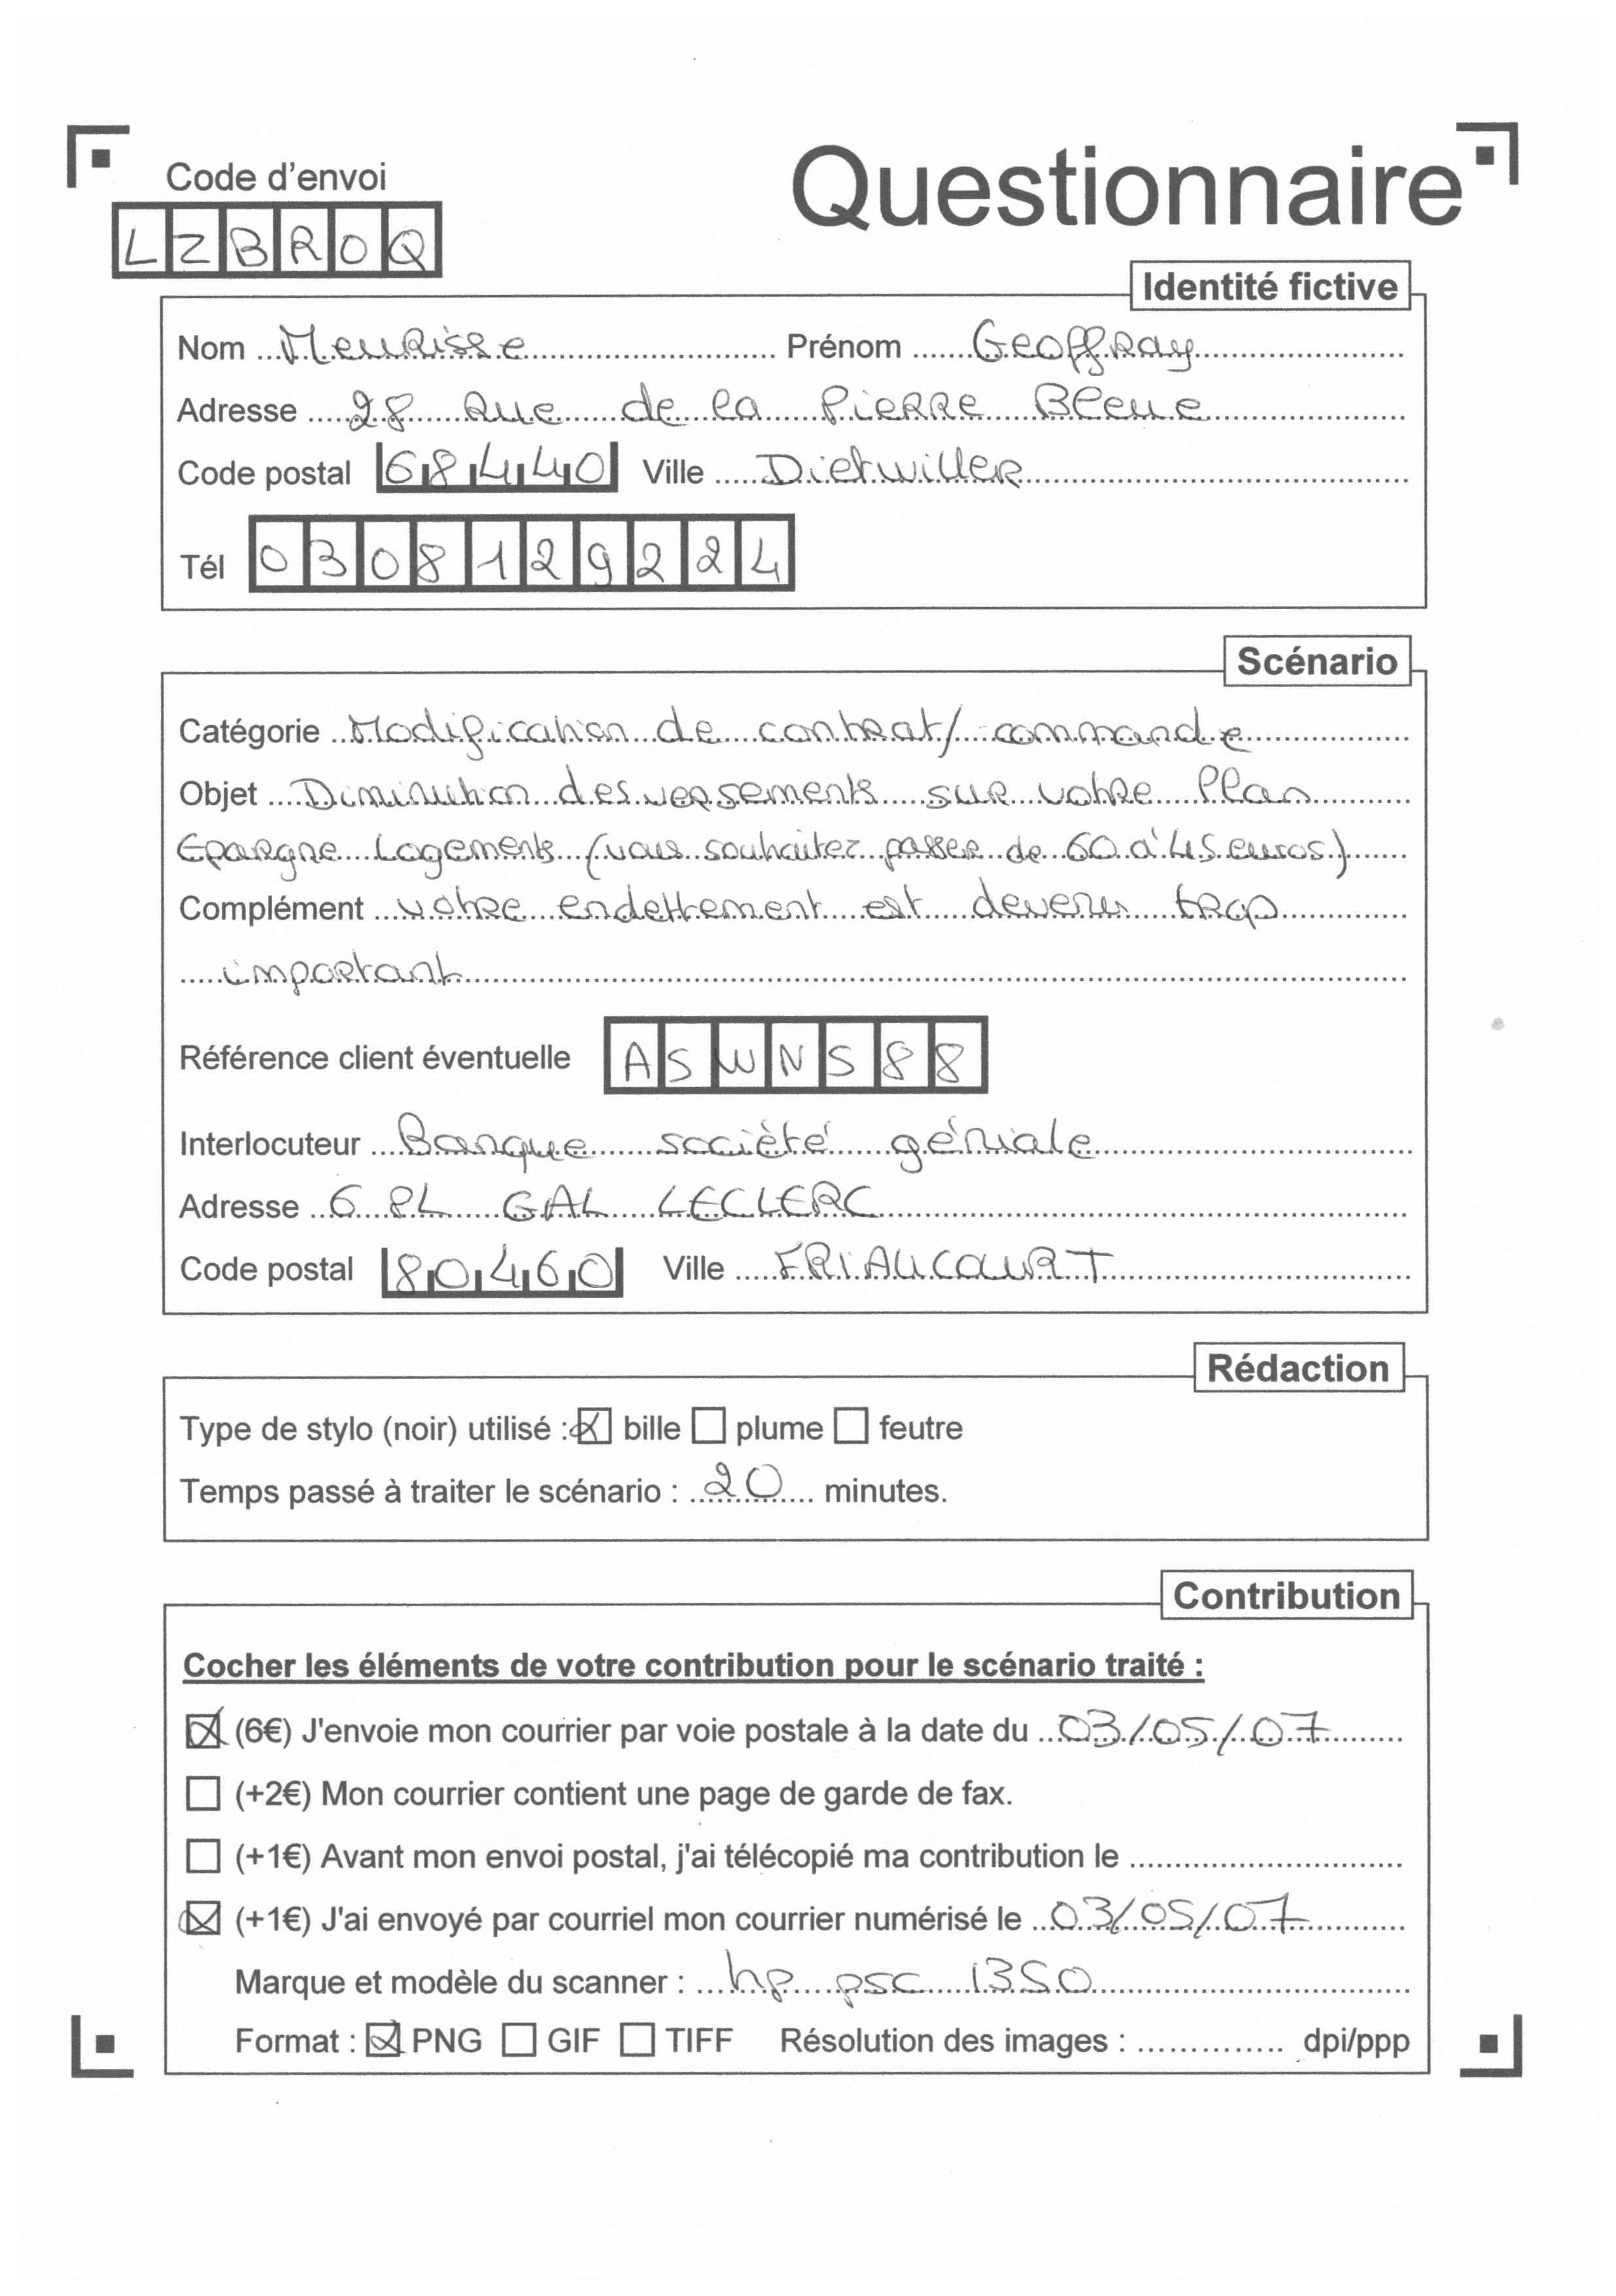 Code d'envoi
Questionnaire
LZBROQ
Identité fictive
Nom Meurisse Prénom Geoffray
Adresse 28 Rue de la Pierre Bleue
Code postal 68440 Ville Dietwiller
Tél 0308129224
Scénario
Catégorie Modification de contrat/ commande
Objet Diminution des versements sur votre Plan
Epargne Logements (vous souhaitez passer de 60 à 45 euros)
Complément votre endettement est devenu trop
important
Référence client éventuelle ASWNS88
Interlocuteur Banque société géniale
Adresse 6 PL GAL LECLERC
Code postal 80460 Ville FRIAUCOURT
Rédaction
Type de stylo (noir) utilisé : bille plume feutre
Temps passé à traiter le scénario : 20 minutes.
Contribution
Cocher les éléments de votre contribution pour le scénario traité :
(6€) J'envoie mon courrier par voie postale à la date du 03/05/07
(+2€) Mon courrier contient une page de garde de fax.
(+1€) Avant mon envoi postal, j'ai télécopié ma contribution le
(+1€) J'ai envoyé par courriel mon courrier numérisé le 03/05/07
Marque et modèle du scanner : hp psc 1350
Format : PNG GIF TIFF Résolution des images : dpi/ppp